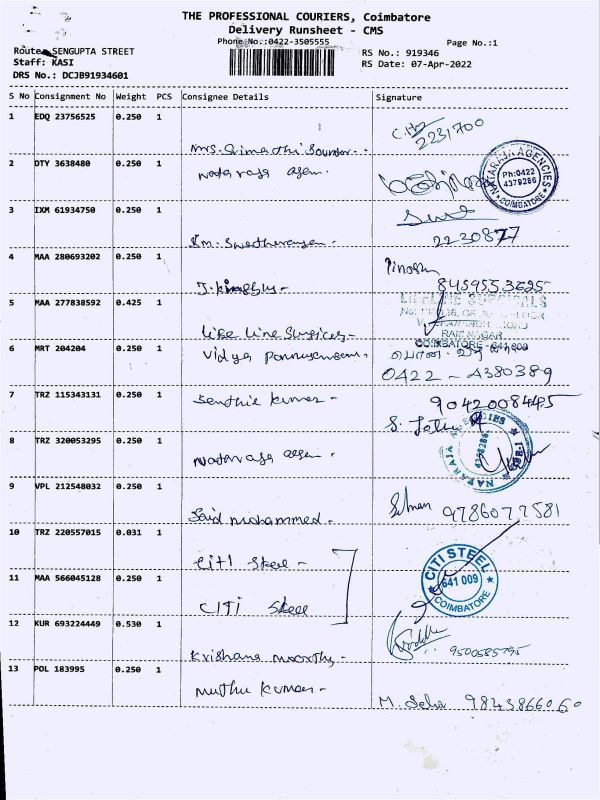 THE PROFESSIONAL COURIERS, Coimbatore
Delivery Runsheet - CMS
Phone No.:0422-3505555
Page No.:1
Route: SENGUPTA STREET
RS No.: 919346
Staff: KASI
RS Date: 07-Apr-2022
DRS No.: DCJB91934601
S No Consignment No Weight PCS Consignee Details Signature
1 EDQ 23756525 0.250 1
2231700
Mrs. Srimathi
2 DTY 3638480 0.250 1
Nataraja Agen.
NATARAJA AGENCIES
Ph:0422
4379286
COIMBATORE
3 IXM 61934750 0.250 1
2230877
4 MAA 280693202 0.250 1
8459553525
5 MAA 277838592 0.425 1
LIFELINE SURGICALS
RAM NAGAR
COIMBATORE - 641 009
Life line Surgicals-
6 MRT 204204 0.250 1
Vidya
0422 - 4380389
7 TRZ 115343131 0.250 1
Senthil Kumar -
9042008445
8 TRZ 320053295 0.250 1
Nataraja Agen -
NATARAJA AGENCIES
9 VPL 212548032 0.250 1
Said Mohammed.
9786077581
10 TRZ 220557015 0.031 1
Citi Steel -
11 MAA 566045128 0.250 1
CITI Steel
CITI STEEL
641 009
COIMBATORE
12 KUR 693224449 0.530 1
Krishana moorthy -
9500585795
13 POL 183995 0.250 1
Muthu Kumar -
M. Selva 9843866060